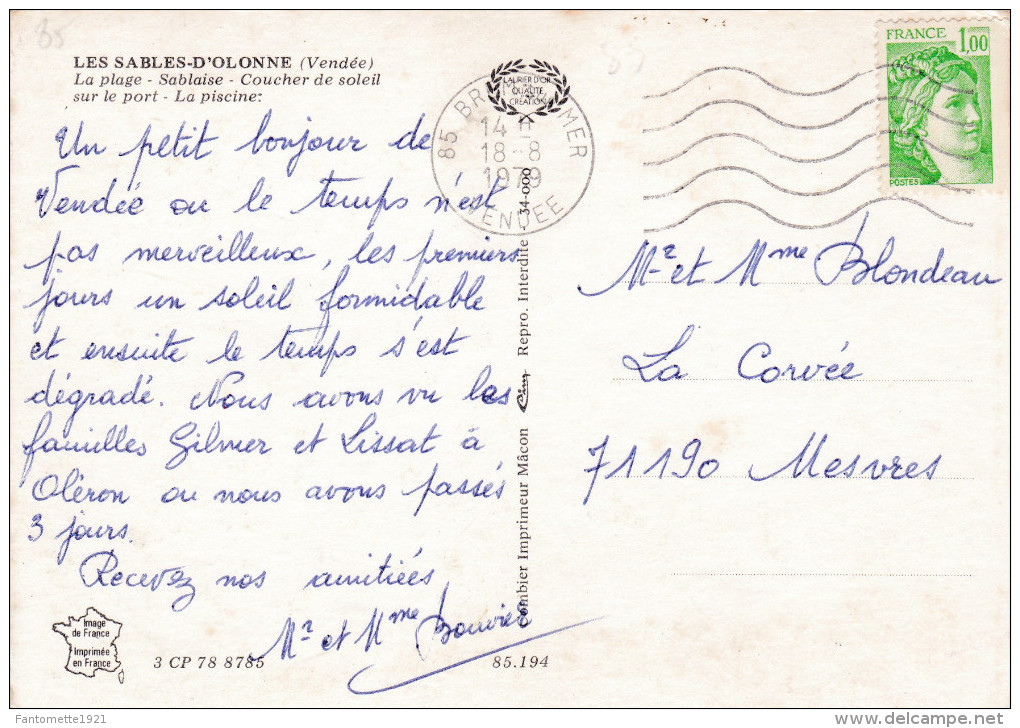 85
LES SABLES-D'OLONNE (Vendée)
La plage - Sablaise - Coucher de soleil
sur le port - La piscine:
LAURIER D'OR
QUALITE
CREATION
85 BR MER
14 H
18-8
1979
VENDEE
FRANCE 1,00
POSTES
Un petit bonjour de
Vendée ou le temps n'est
pas merveilleux, les premiers
jours un soleil formidable
et ensuite le temps s'est
dégradé. Nous avons vu les
familles Gilmer et Lissat à
Oléron ou nous avons passés
3 jours.
Recevez nos amitiées
Mr et Mme Bouvier
Mr et Mme Blondeau
La Corvée
71190 Mesvres
Combier Imprimeur Mâcon Cim Repro. Interdite 34-000
Image
de France
Imprimée
en France
3 CP 78 8785
85.194
Fantomette1921
delcampe.net